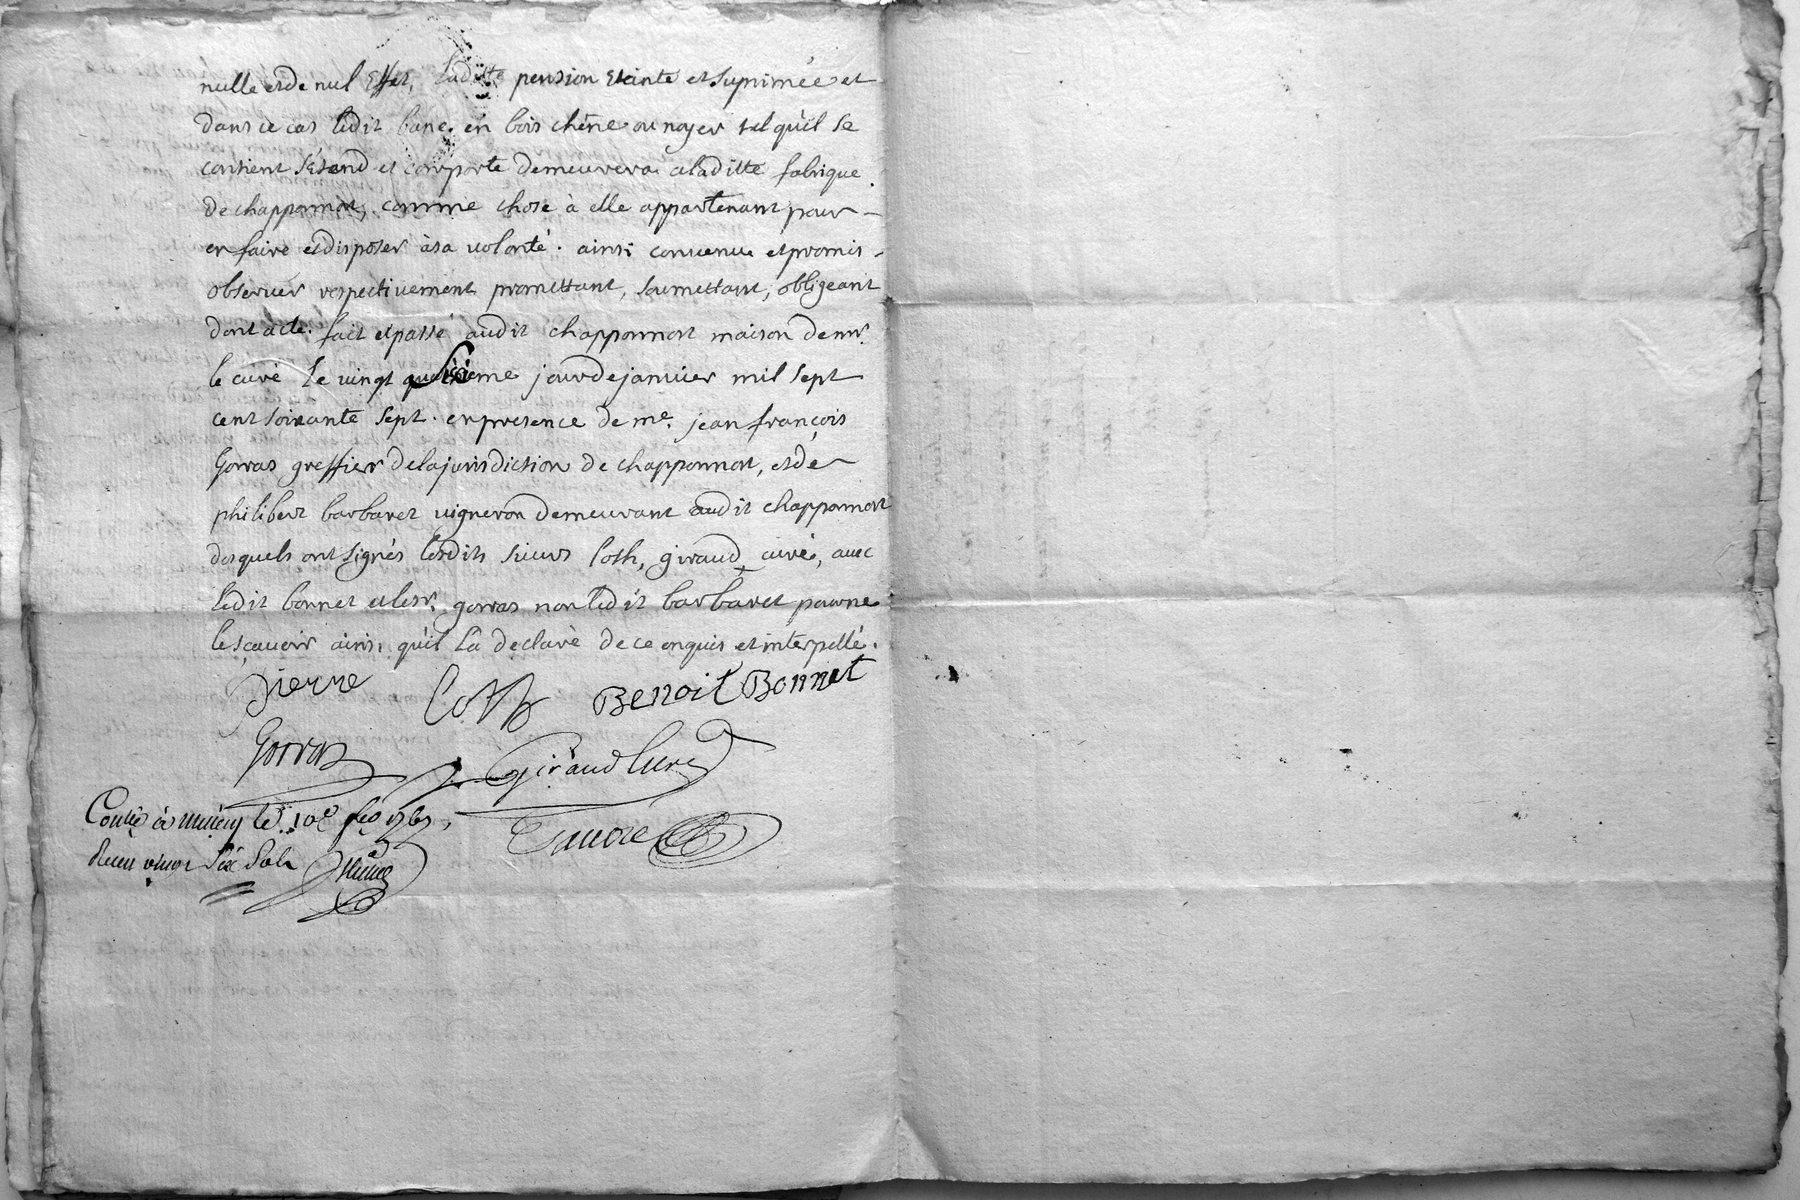 nulle et de nul Effet, Laditte pension Eteinte et Suprimée et
dans ce cas ledit banc en bois chêne ou noyer tel qu'il se
contient s'étend et comporte demeurera a laditte fabrique
de chapponnost, comme chose à elle appartenant pour
en faire et disposer à sa volonté. ainsi convenu et promis
observer respectivement promettant, soumettant, obligeant
dont acte. fait et passé audit chapponnost maison de mr.
le curé le vingt Sixieme jour de janvier mil sept
cent soixante sept. en presence de me. jean françois
Gorras greffier de la jurisdiction de chapponnost, et de
philibert barbaret vigneron demeurant audit chapponnost
desquels ont signés lesdits sieurs loth, giraud curé, avec
ledit bonnet et le sr. gorras non ledit barbaret pour ne
le sçavoir ainsi qu'il l'a declaré de ce enquis et interpellé.
pierre Loth Benoit Bonnet
Gorras Giraud Curé
Conlé à le 10e feb 1767,
Recu vingt Six Sols